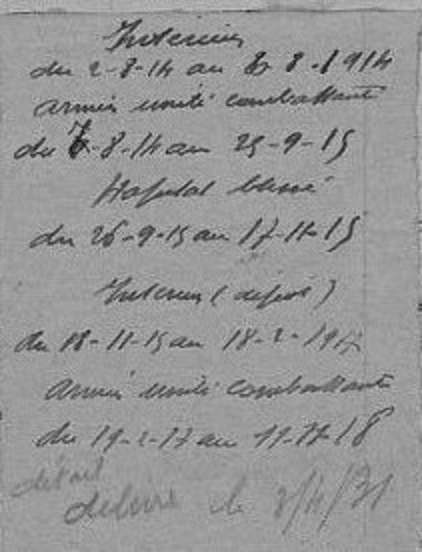 Intérieur
du 2-8-14 au 6-8-1914
armée unité combattante
du 7-8-14 au 25-9-15
Hopital blessé
du 26-9-15 au 17-11-15
Intérieur (dépôt)
du 18-11-15 au 18-2-1917
armée unité combattante
du 19-2-17 au 11-11-18
détail
délivré le /4/31